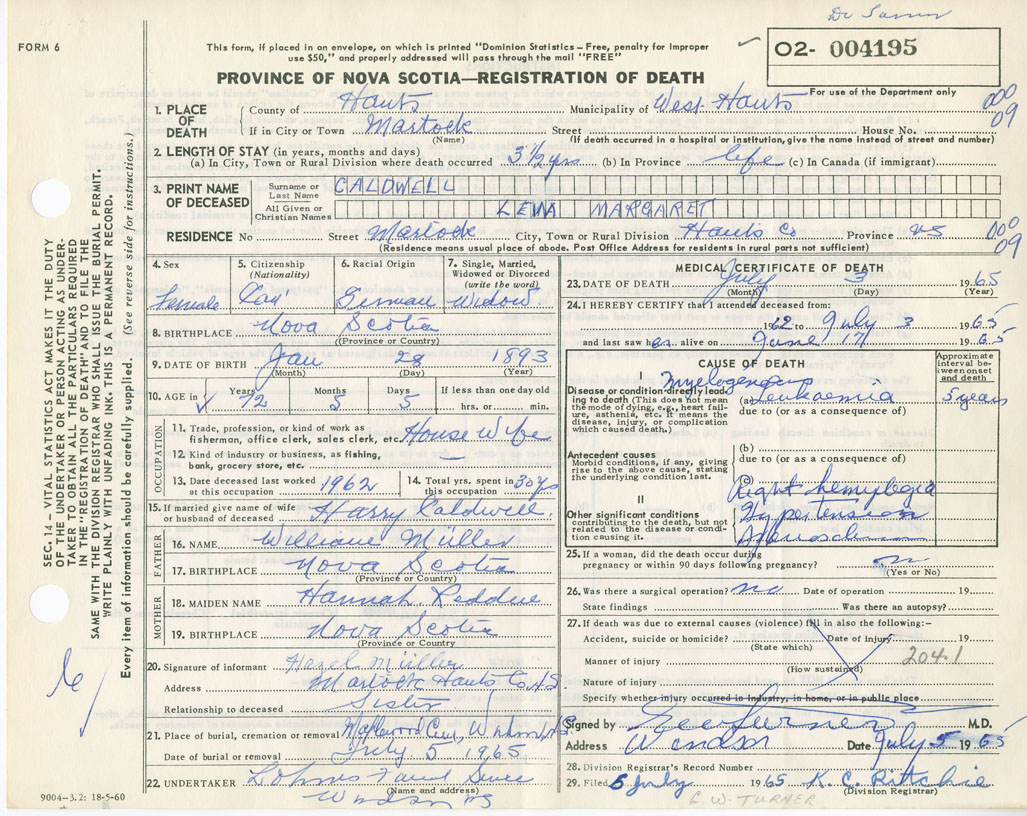 FORM 6
This form, if placed in an envelope, on which is printed "Dominion Statistics – Free, penalty for improper
use $50," and properly addressed will pass through the mail "FREE"
O2- 004195
PROVINCE OF NOVA SCOTIA—REGISTRATION OF DEATH
For use of the Department only
1. PLACE OF DEATH
County of Hants Municipality of West Hants
000
09
If in City or Town Martock Street House No.
(Name) (If death occurred in a hospital or institution, give the name instead of street and number)
2. LENGTH OF STAY (in years, months and days)
(a) In City, Town or Rural Division where death occurred 3½ yrs (b) In Province life (c) In Canada (if immigrant)
3. PRINT NAME OF DECEASED
Surname or Last Name CALDWELL
All Given or Christian Names LENA MARGARET
RESIDENCE No Street Martock City, Town or Rural Division Hants Co Province NS
000
09
(Residence means usual place of abode. Post Office Address for residents in rural parts not sufficient)
SEC. 14 – VITAL STATISTICS ACT MAKES IT THE DUTY
OF THE UNDERTAKER OR PERSON ACTING AS UNDER-
TAKER TO OBTAIN ALL THE PARTICULARS REQUIRED
IN THE "REGISTRATION OF DEATH" AND TO FILE THE
SAME WITH THE DIVISION REGISTRAR WHO SHALL ISSUE THE BURIAL PERMIT.
WRITE PLAINLY WITH UNFADING INK. THIS IS A PERMANENT RECORD.
Every item of information should be carefully supplied. (See reverse side for instructions.)
4. Sex
Female
5. Citizenship
(Nationality)
Can
6. Racial Origin
German
7. Single, Married,
Widowed or Divorced
(write the word)
Widow
8. BIRTHPLACE Nova Scotia
(Province or Country)
9. DATE OF BIRTH Jan 28 1893
(Month) (Day) (Year)
10. AGE in
Years Months Days If less than one day old
72 5 5 hrs. or min.
OCCUPATION
11. Trade, profession, or kind of work as
fisherman, office clerk, sales clerk, etc. House Wife
12. Kind of industry or business, as fishing,
bank, grocery store, etc. —
13. Date deceased last worked
at this occupation 1962
14. Total yrs. spent in
this occupation 30 yrs
15. If married give name of wife
or husband of deceased Harry Caldwell
FATHER
16. NAME William Müller
17. BIRTHPLACE Nova Scotia
(Province or Country)
MOTHER
18. MAIDEN NAME Hannah
19. BIRTHPLACE Nova Scotia
(Province or Country)
20. Signature of informant Hazel Müller
Address Martock Hants Co N.S.
Relationship to deceased Sister
21. Place of burial, cremation or removal Maplewood Cem, Windsor, N.S.
Date of burial or removal July 5 1965
22. UNDERTAKER
(Name and address)
Windsor NS
9004-3.2: 18-5-60
MEDICAL CERTIFICATE OF DEATH
23. DATE OF DEATH July 3 1965
(Month) (Day) (Year)
24. I HEREBY CERTIFY that I attended deceased from:
1962 to July 3 1965
and last saw her alive on June 17 1965
CAUSE OF DEATH
Approximate
interval between
onset
and death
I
Disease or condition directly lead-
ing to death (This does not mean
the mode of dying, e.g., heart fail-
ure, asthenia, etc. It means the
disease, injury, or complication
which caused death.)
Myelogenous
(a) Leukaemia 5 years
due to (or as a consequence of)
Antecedent causes
Morbid conditions, if any, giving
rise to the above cause, stating
the underlying condition last.
(b)
due to (or as a consequence of)
II
Other significant conditions
contributing to the death, but not
related to the disease or condi-
tion causing it.
Right hemplegia
Hypertension
25. If a woman, did the death occur during
pregnancy or within 90 days following pregnancy? no
(Yes or No)
26. Was there a surgical operation? no Date of operation 19
State findings Was there an autopsy?
27. If death was due to external causes (violence) fill in also the following:–
Accident, suicide or homicide? Date of injury 19
(State which)
204.1
Manner of injury
(How sustained)
Nature of injury
Specify whether injury occurred in industry, in home, or in public place
Signed by M.D.
Address Windsor Date July 5 1965
28. Division Registrar's Record Number
29. Filed 5 July 1965 K. C. Ritchie
(Division Registrar)
E. W. TURNER